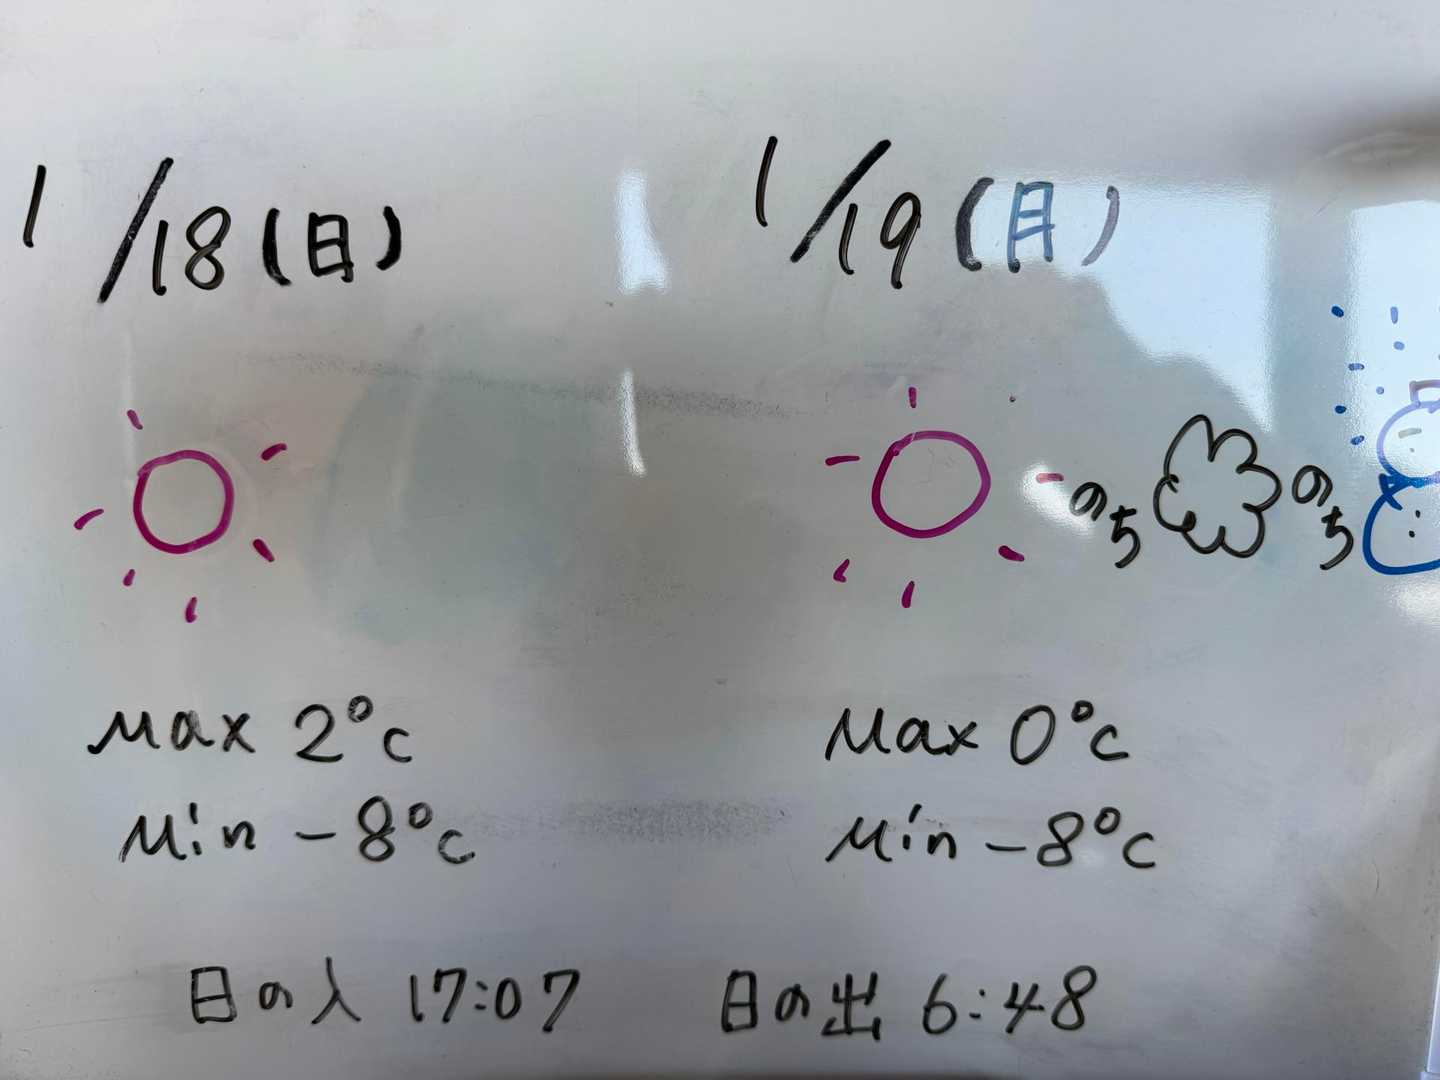 1/18(日)
1/19(月)
のち
のち
Max 2°C
Min -8°C
Max 0°C
Min -8°C
日の入 17:07
日の出 6:48